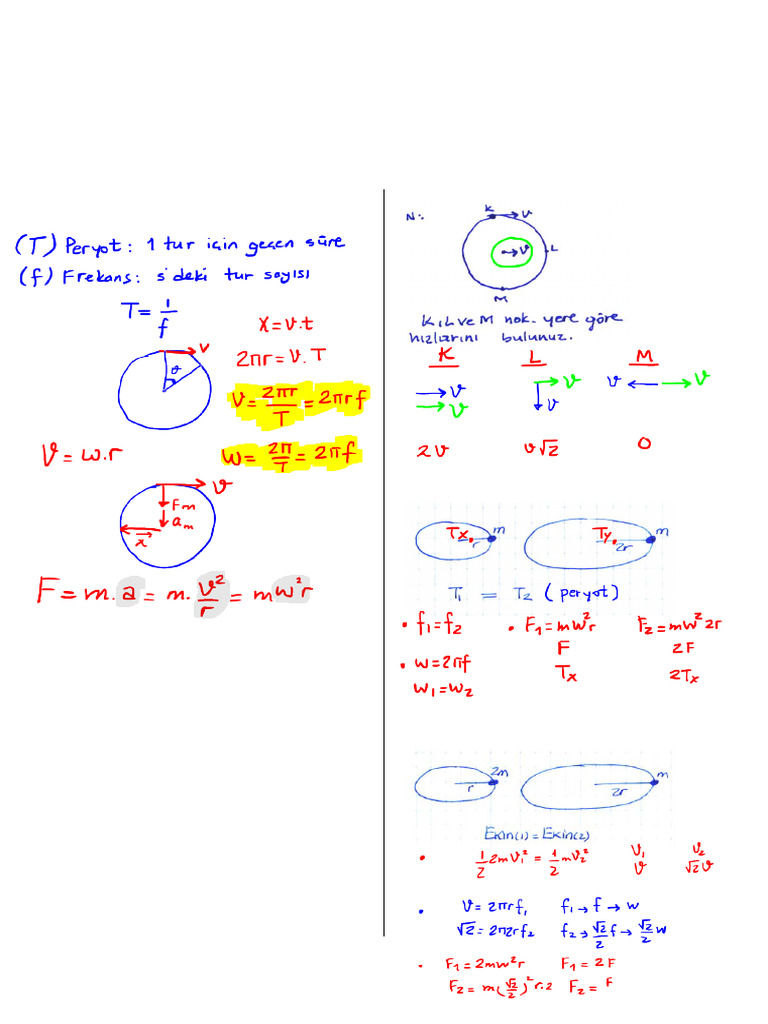 (T) Peryot: 1 tur için geçen süre
(f) Frekans: s'deki tur sayısı
T = 1/f
x = v.t
2πr = v.T
v = 2πr/T = 2πrf
v
θ
v = w.r
w = 2π/T = 2πf
v
Fm
am
r
F = m.a = m.v²/r = mw²r
N:
K
v
v
L
M
K,L ve M nok. yere göre
hızlarını bulunuz.
K L M
v v v v v
v
2v v√2 0
Tx r m
Ty 2r m
T1 = T2 (peryot)
• f1=f2 • F1=mw²r F2=mw²2r
F 2F
• w=2πf Tx 2Tx
w1=w2
r 2m
2r m
Ekin(1) = Ekin(2)
• 1/2 2mV1² = 1/2 mV2² V1 V2
v √2v
• v=2πrf1 f1→f→w
√2=2π2rf2 f2→√2/2 f→√2/2 w
• F1=2mw²r F1=2F
F2=m(√2/2)² r.2 F2=F